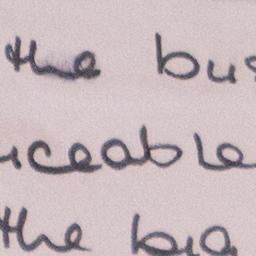 the bus
iceable
the big